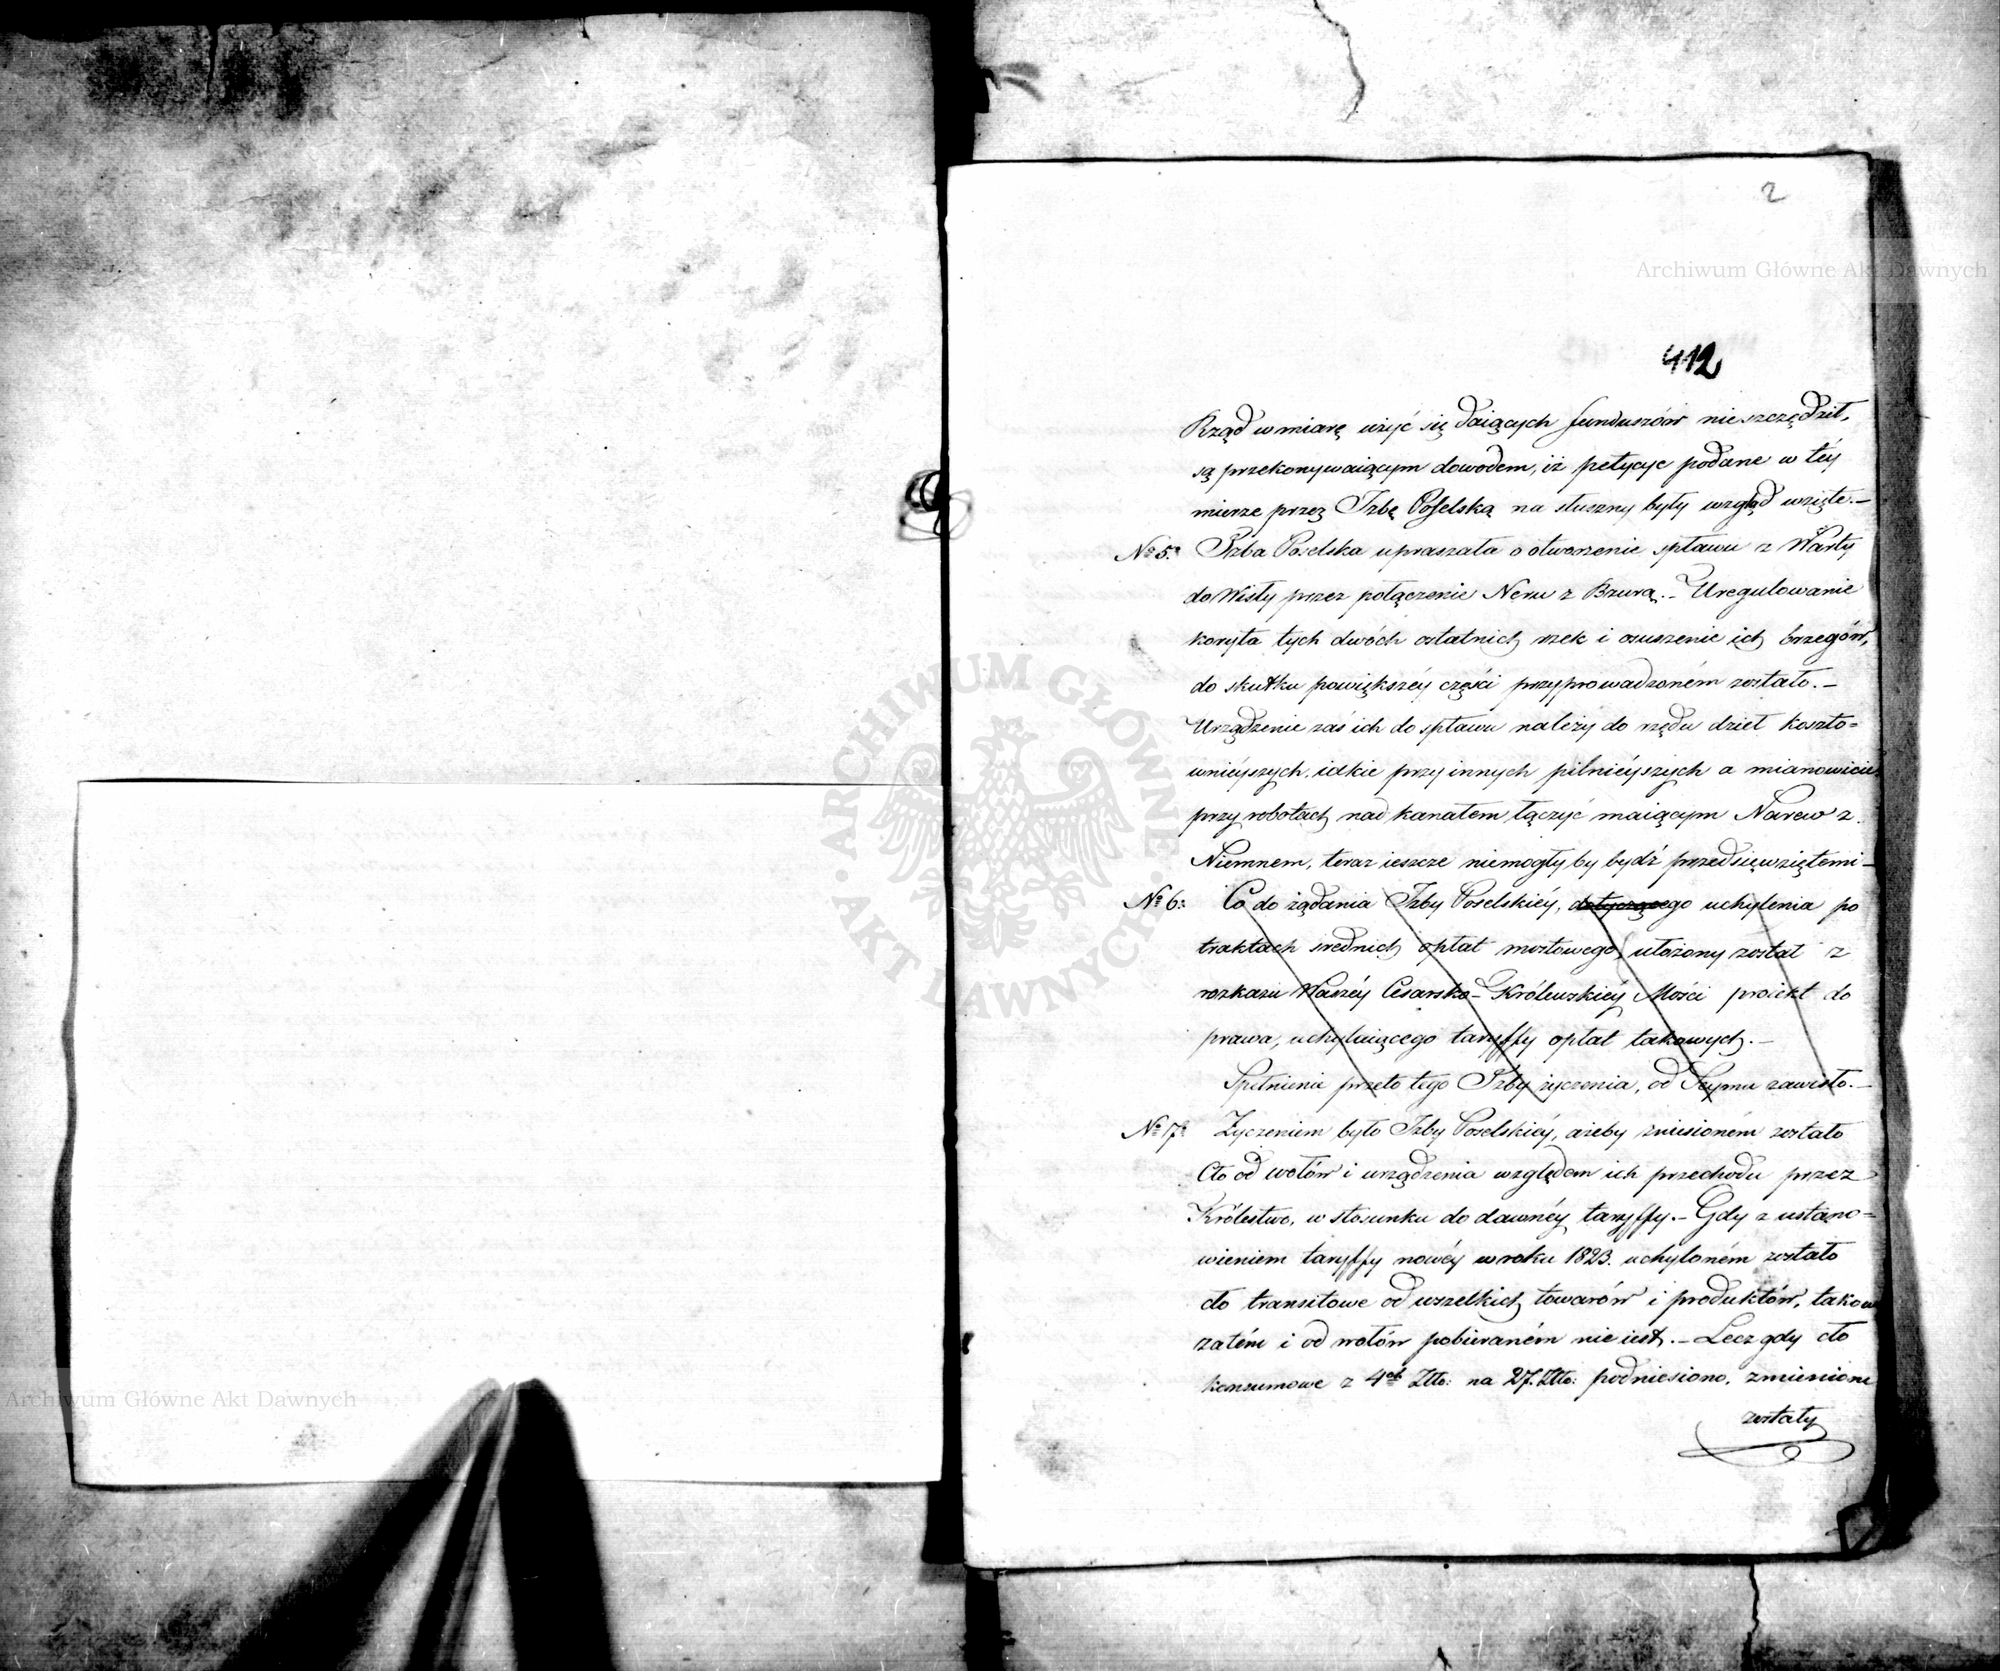 2
412
Rząd w miarę użyć się daiących funduszów nieszczędził,
są przekonywaiącym dowodem, iż petycye podane w téy
mierze przez Izbę Poselską na słuszny były wzgląd wzięte.—
Nº 5: Izba Poselska upraszała o otworzenie spławu z Warty
do Wisły przez połączenie Neru z Bzurą.— Uregulowanie
koryta tych dwóch ostatnich rzek i osuszenie ich brzegów,
do skutku powiększéy części przyprowadzoném zostało.—
Urządzenie zaś ich do spławu należy do rzędu dzieł koszto=
wnieyszych, iakie przy innych pilnieyszych a mianowicie
przy robotach nad kanałem łączyć maiącym Narew z
Niemnem, teraz ieszcze niemogłyby bydź przedsięwziętemi—
Nº 6: Co do żądania Izby Poselskiéy, dotyczącego uchylenia po
traktach średnich opłat mostowego, ułożony został z
rozkazu Waszéy Cesarsko-Królewskiéy Mości proiekt do
prawa, uchylaiącego taryffy opłat takowych.—
Spełnienie przeto tego Izby życzenia, od Seymu zawisło.—
Nº 7: Życzeniem było Izby Poselskiéy, ażeby zniesioném zostało
Cło od wołów i urządzenia względem ich przechodu przez
Królestwo, w stosunku do dawnéy taryffy.— Gdy z ustano=
wieniem taryffy nowéy w roku 1823. uchyloném zostało
cło transitowe od wszelkich towarów i produktów, takow
zatém i od wołów pobieraném nie iest.— Lecz gdy cło
konsumowe z 4ch Złło: na 27. Złło: podniesiono, zmienione
zostały
Archiwum Główne Akt Dawnych
Archiwum Główne Akt Dawnych
ARCHIWUM GŁÓWNE AKT DAWNYCH